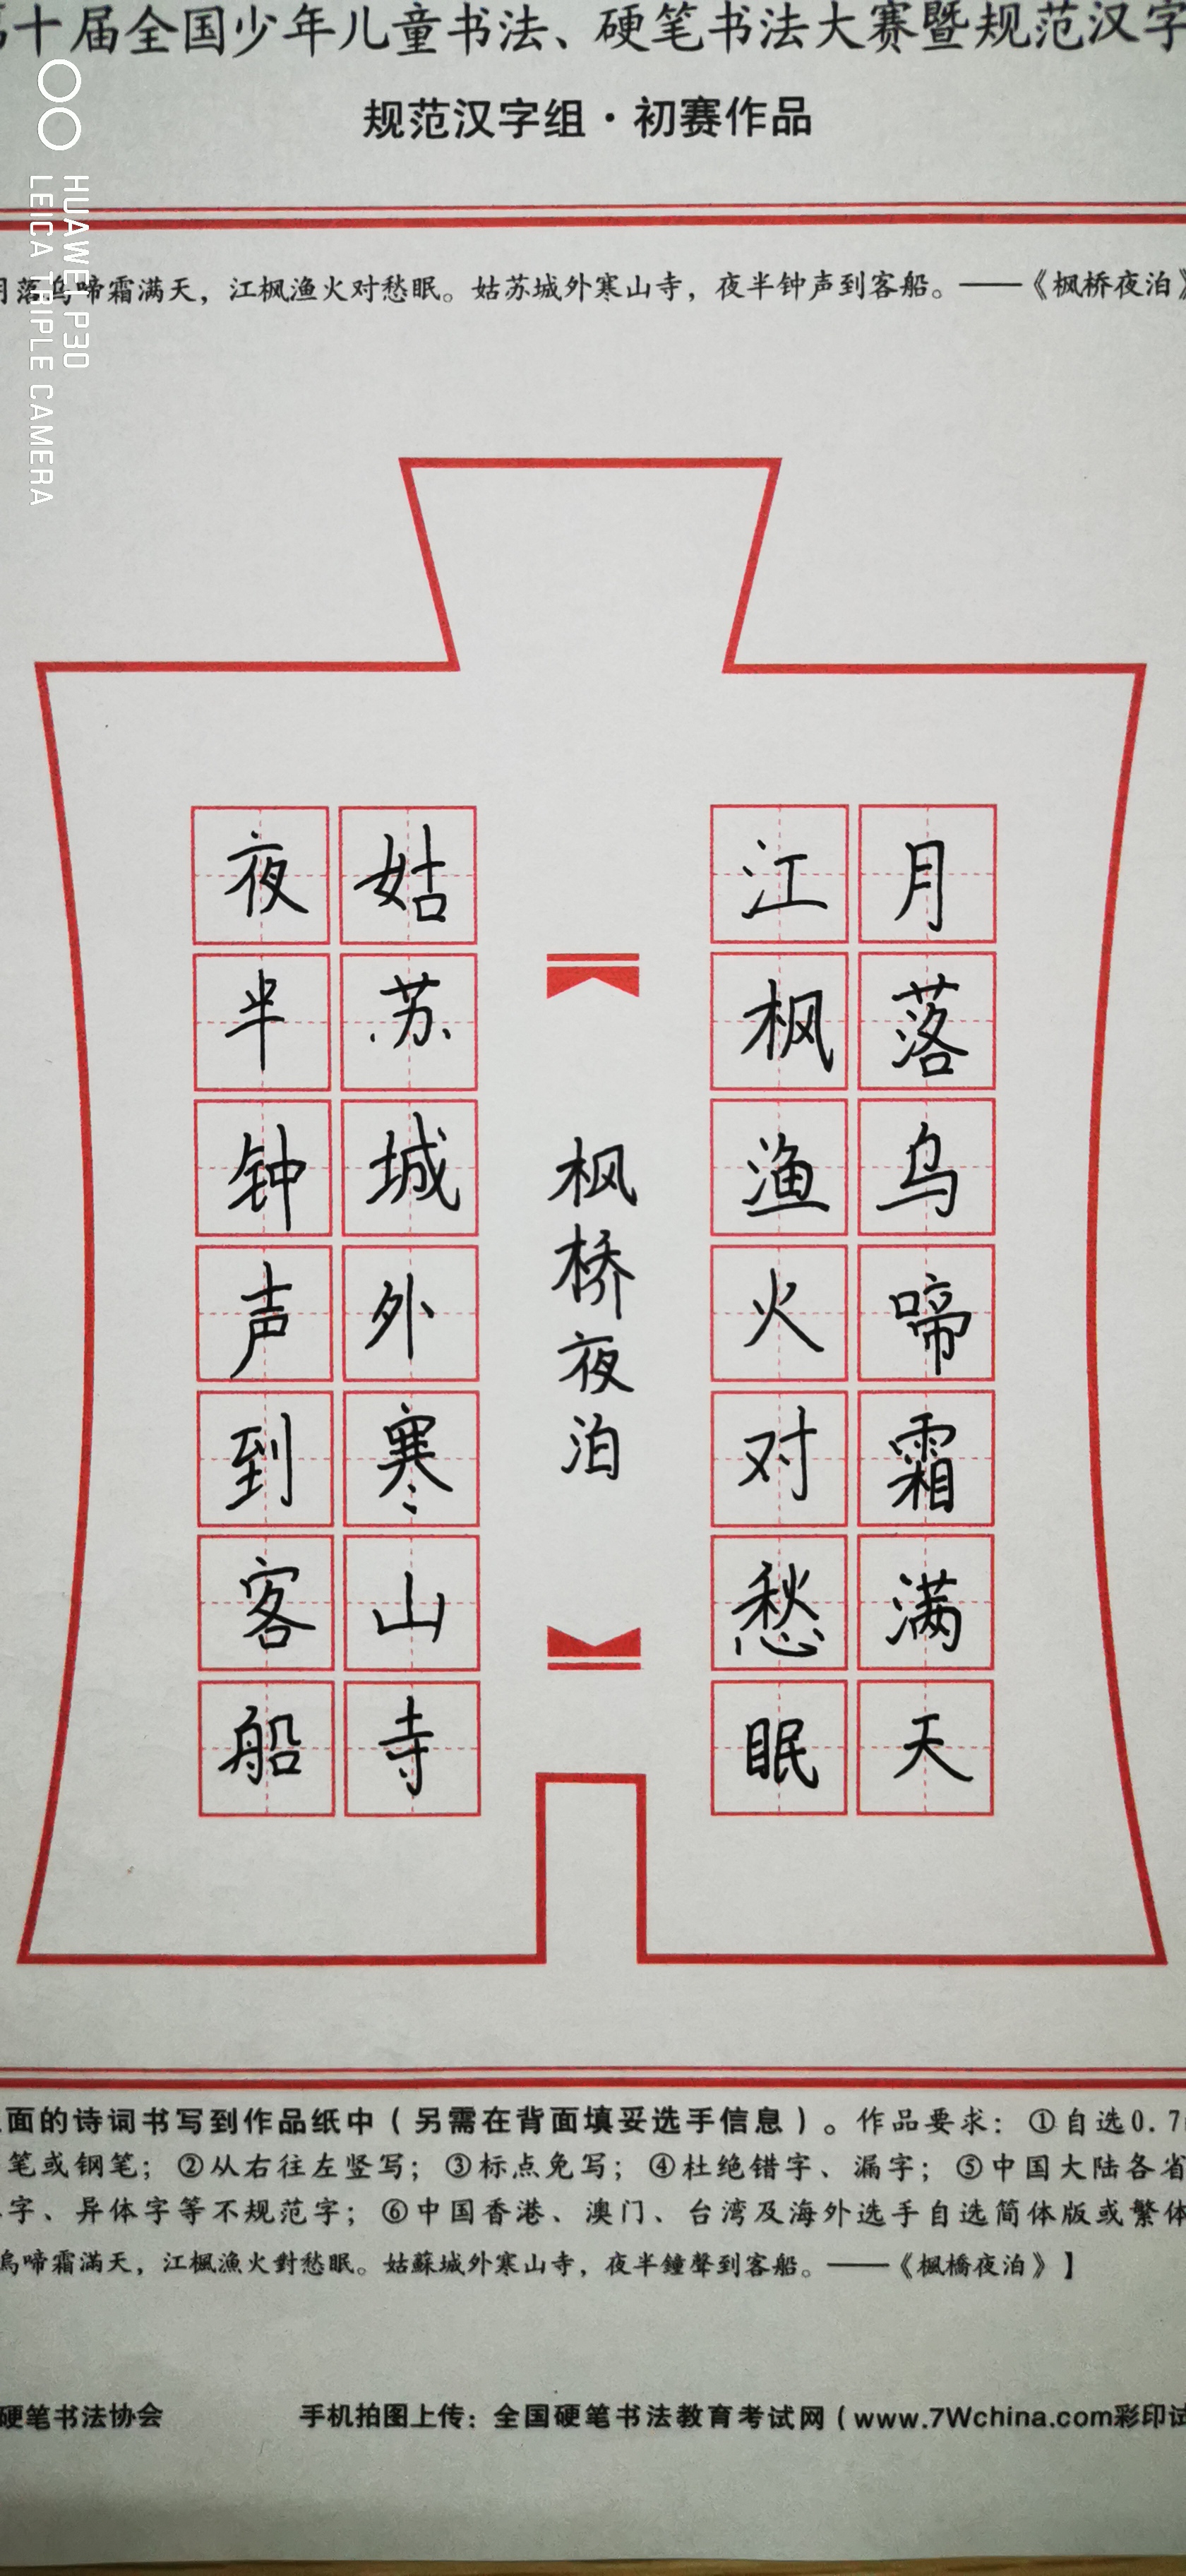 第十届全国少年儿童书法、硬笔书法大赛暨规范汉字
规范汉字组·初赛作品
HUAWEI P30
LEICA TRIPLE CAMERA
月落乌啼霜满天，江枫渔火对愁眠。姑苏城外寒山寺，夜半钟声到客船。——《枫桥夜泊》
月落乌啼霜满天
江枫渔火对愁眠
枫桥夜泊
姑苏城外寒山寺
夜半钟声到客船
面的诗词书写到作品纸中（另需在背面填妥选手信息）。作品要求：①自选0.7
笔或钢笔；②从右往左竖写；③标点免写；④杜绝错字、漏字；⑤中国大陆各省
字、异体字等不规范字；⑥中国香港、澳门、台湾及海外选手自选简体版或繁体
烏啼霜滿天，江楓漁火對愁眠。姑蘇城外寒山寺，夜半鐘聲到客船。——《楓橋夜泊》】
硬笔书法协会
手机拍图上传：全国硬笔书法教育考试网（www.7Wchina.com彩印试